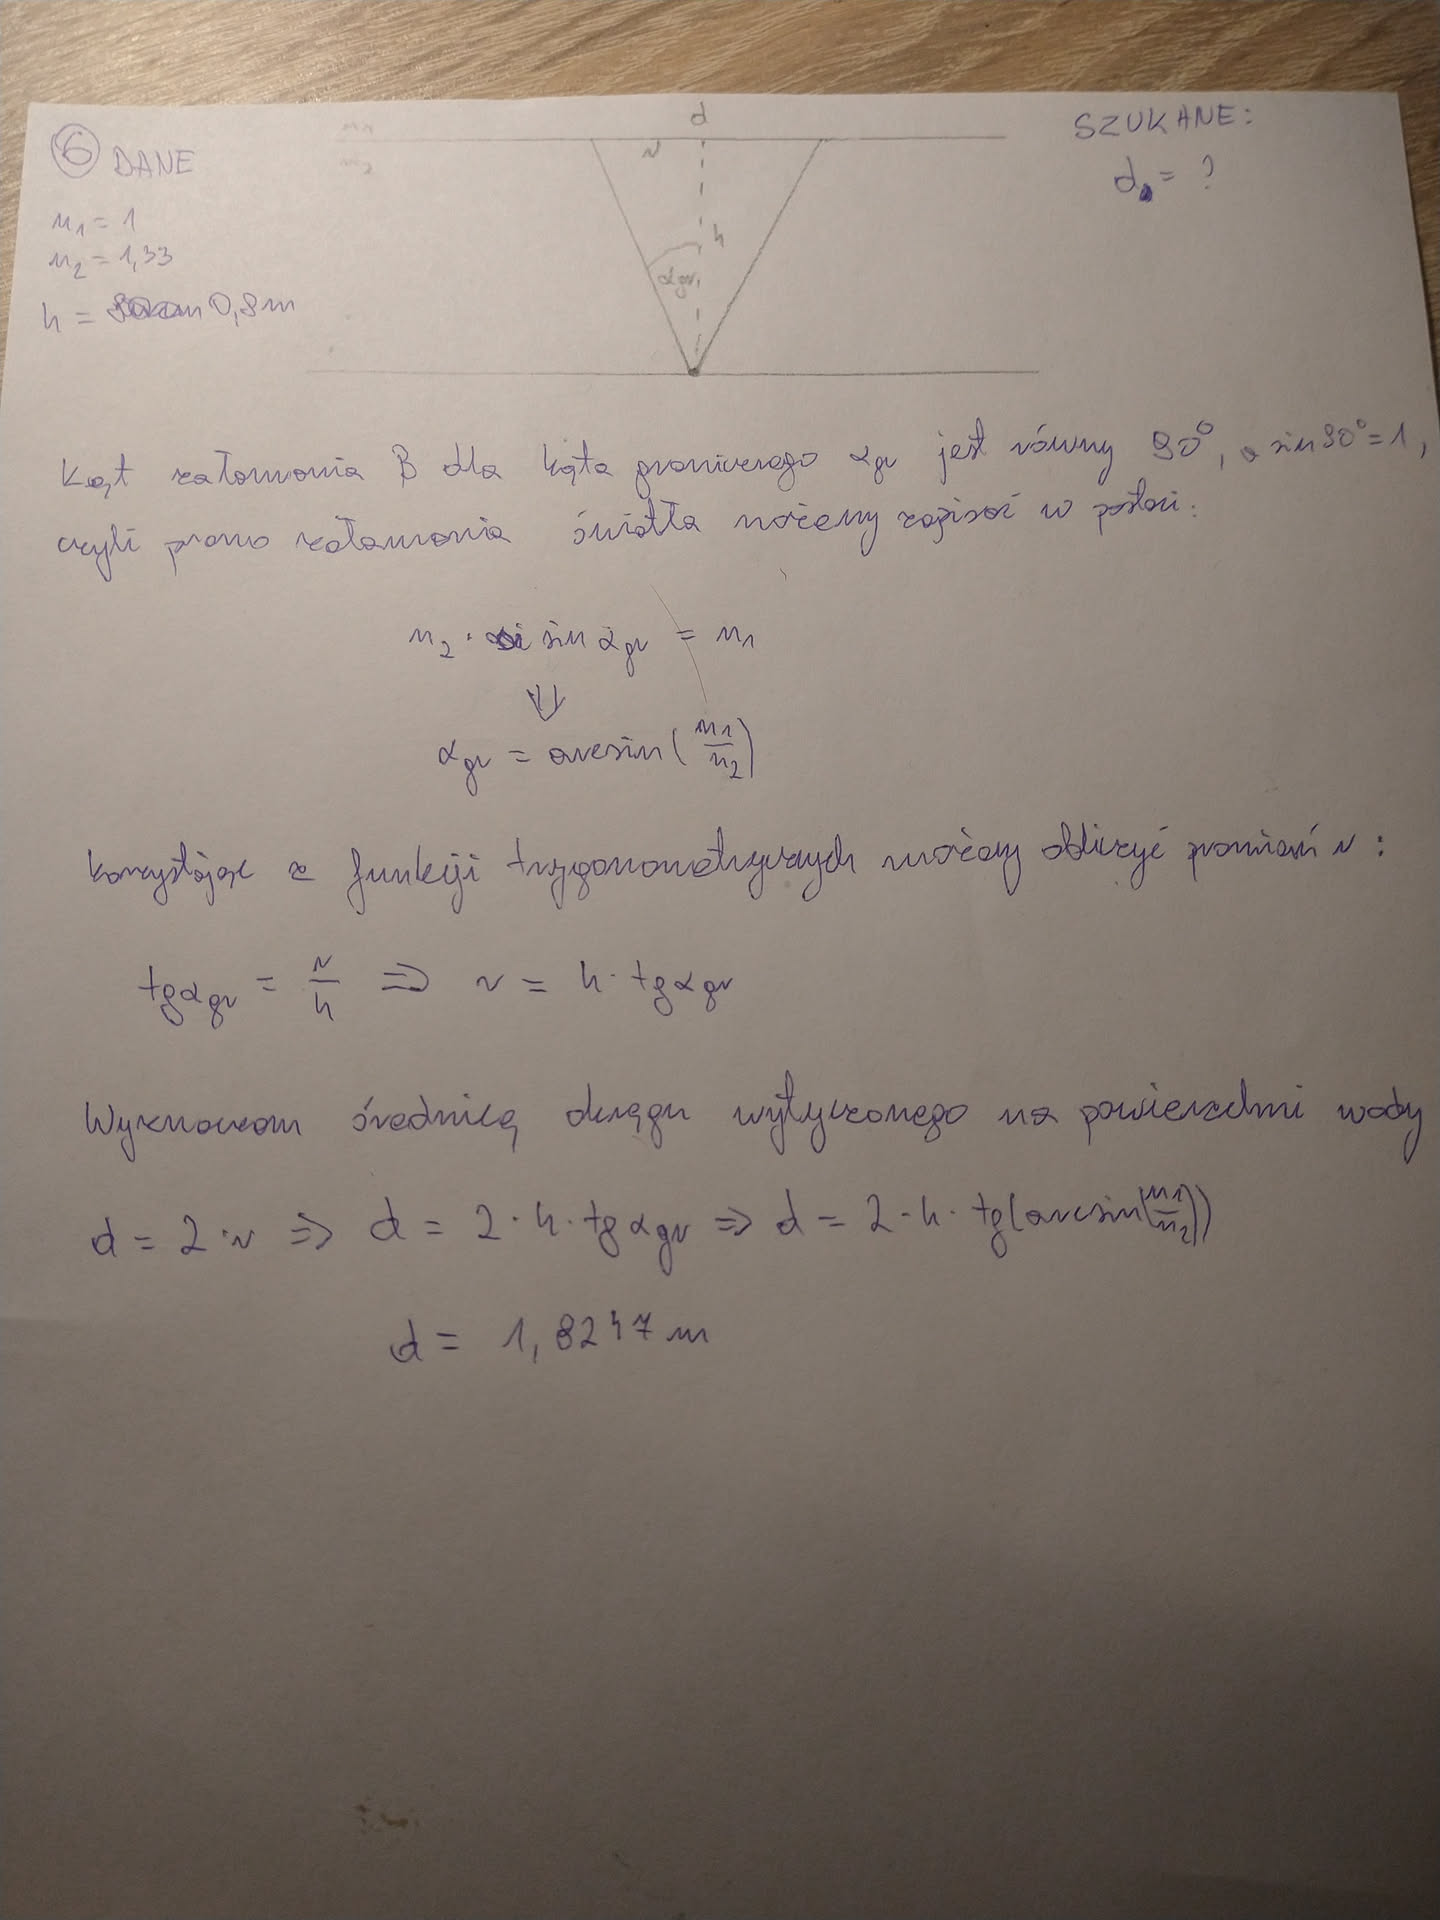 6 DANE
n₁ = 1
n₂ = 1,33
h = 0,8m
n₁
n₂
d
r
h
αgr
SZUKANE:
d = ?
Kąt załamania β dla kąta granicznego αgr jest równy 90°, a sin90° = 1,
czyli prawo załamania światła możemy zapisać w postaci:
n₂ · sin αgr = n₁
⇓
αgr = arcsin(n₁/n₂)
Korzystając z funkcji trygonometrycznych możemy obliczyć promień r:
tgαgr = r/h ⇒ r = h · tgαgr
Wyznaczam średnicę okręgu wytyczonego na powierzchni wody
d = 2·r ⇒ d = 2·h·tgαgr ⇒ d = 2·h·tg(arcsin(n₁/n₂))
d = 1,8247m